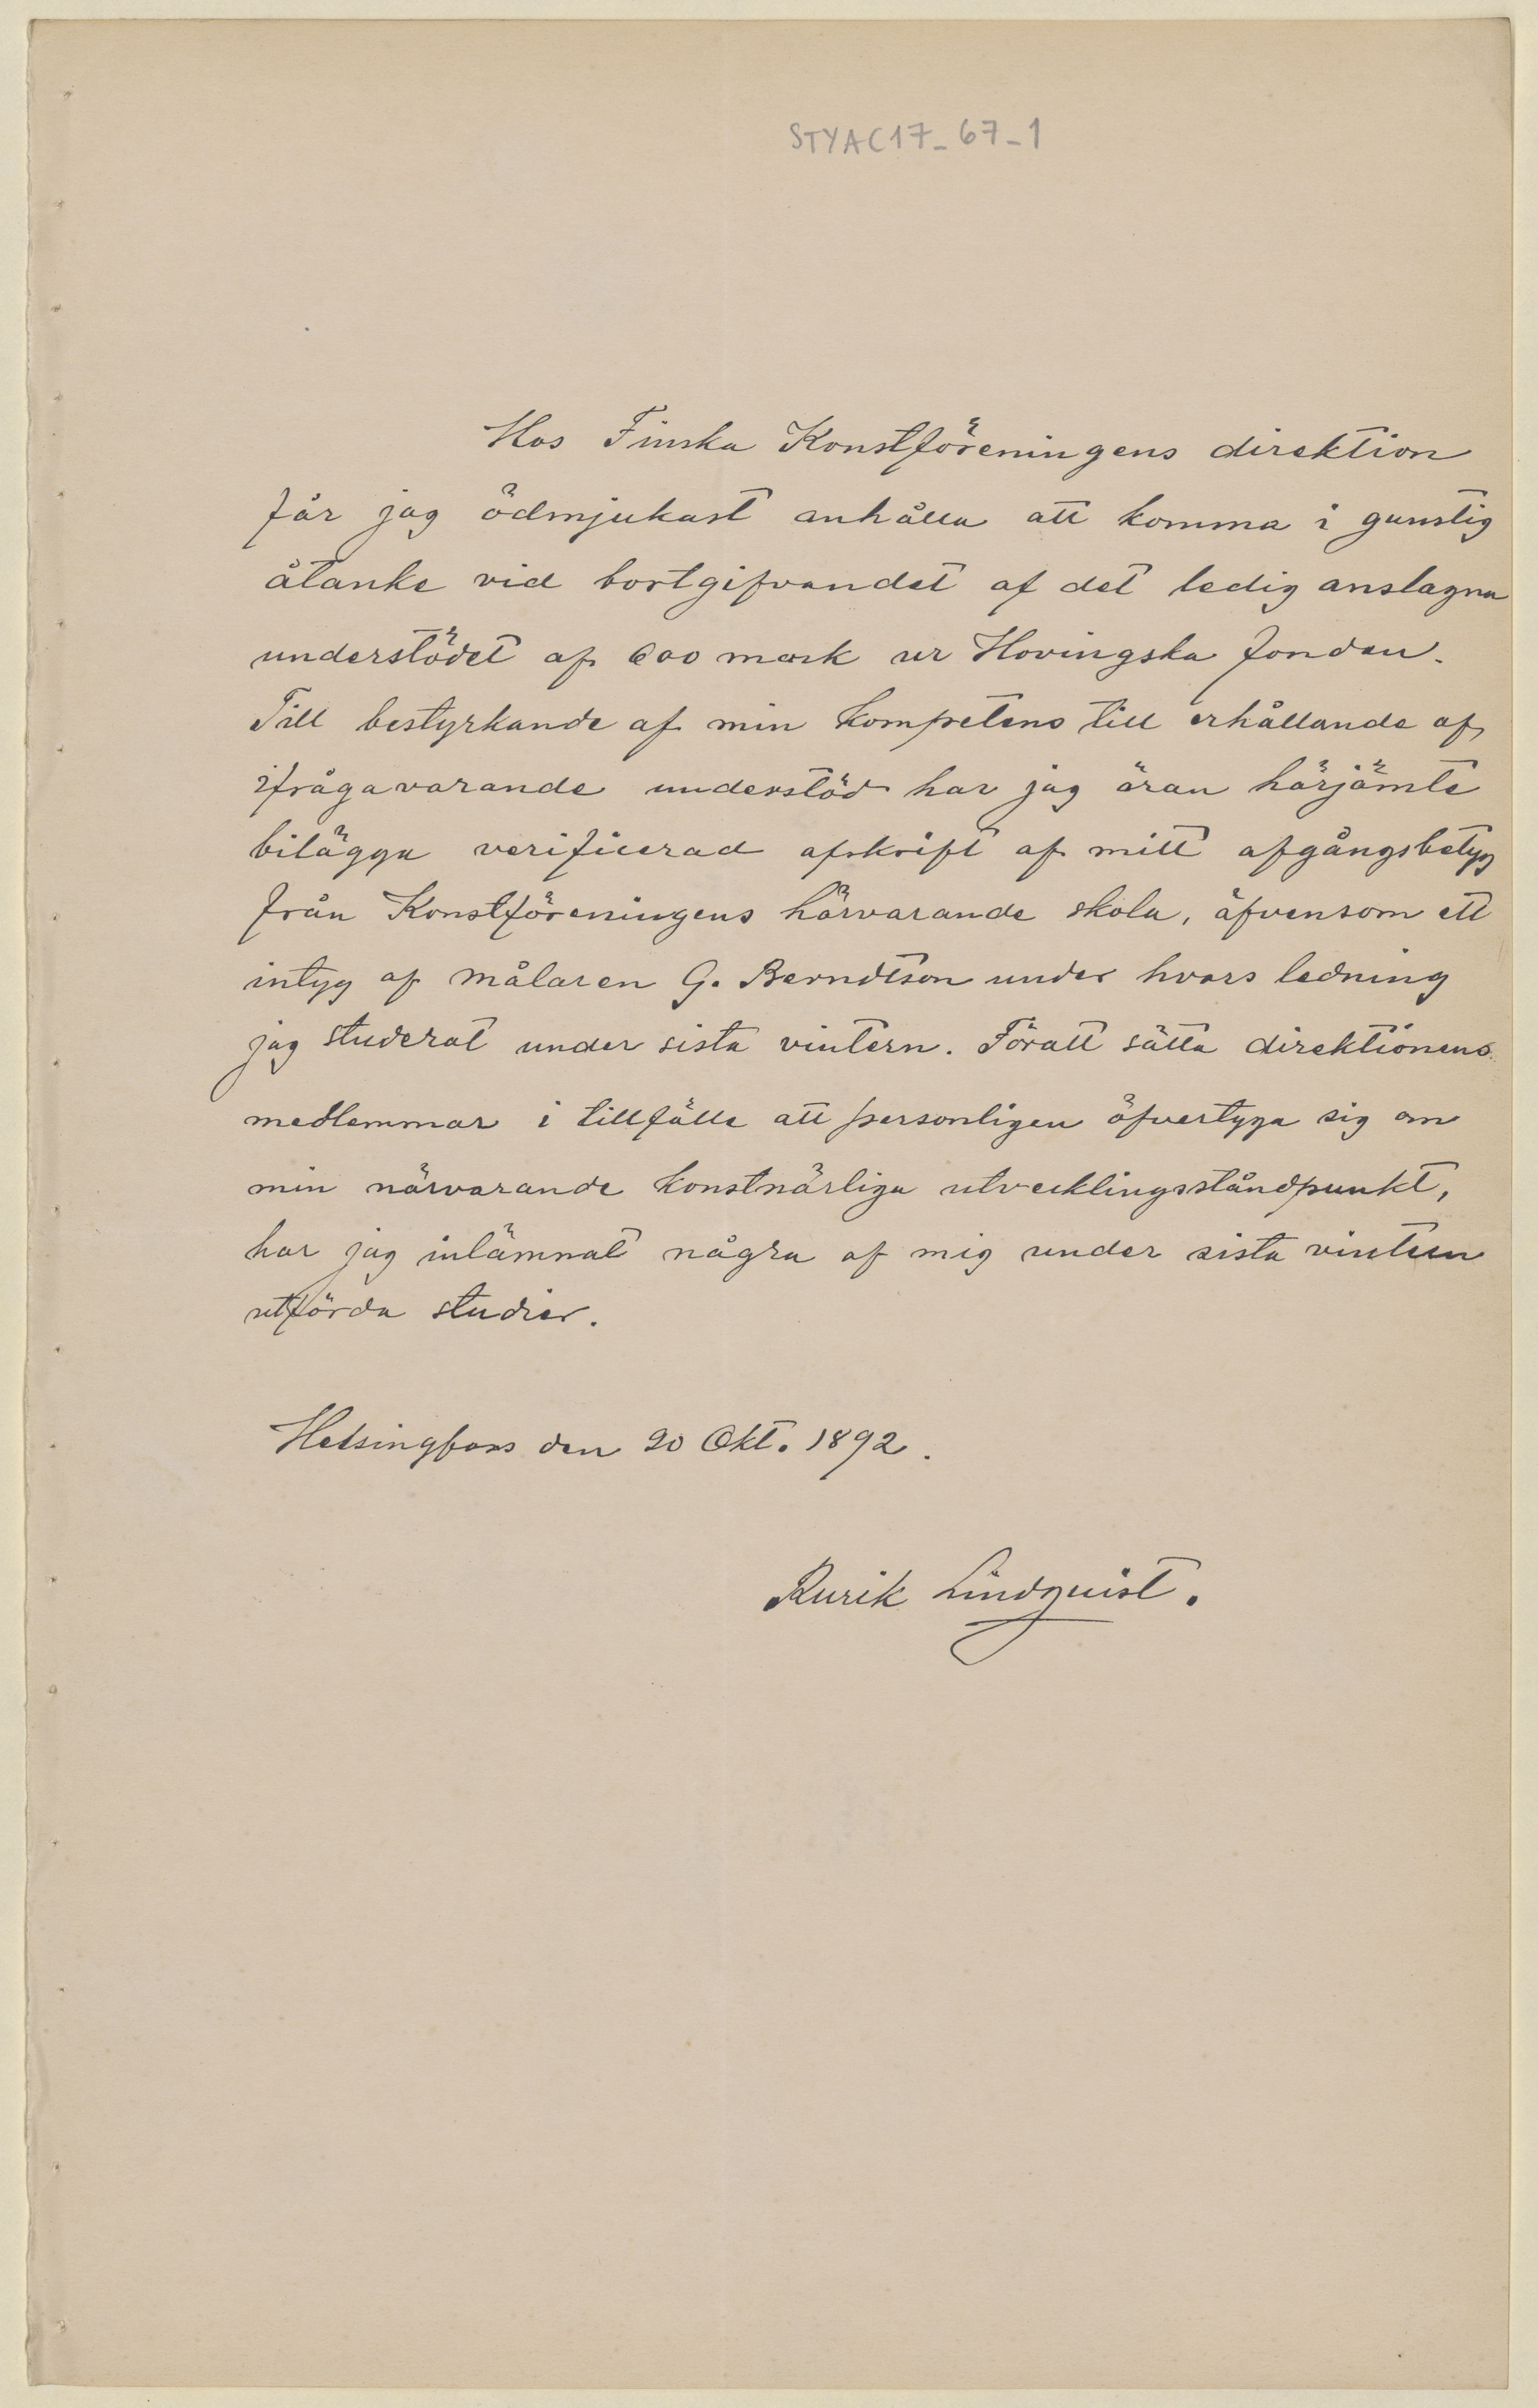 STYAC17_67_1
Hos Finska Konstföreningens direktion
får jag ödmjukast anhålla att komma i gunstig
åtanke vid bortgifvandet af det ledig anslagna
understödet af 600 mark ur Hovingska fonden.
Till bestyrkande af min kompetens till erhållande af
ifrågavarande understöd har jag äran härjämte
bilägga verificerad afskrift af mitt afgångsbetyg
från Konstföreningens härvarande skola, äfvensom ett
intyg af målaren G. Berndtson under hvars ledning
jag studerat under sista vintern. Föratt sätta direktionens
medlemmar i tillfälle att personligen öfvertyga sig om
min närvarande konstnärliga utvecklingsståndpunkt,
har jag inlämnat några af mig under sista vintern
utförda studier.
Helsingfors den 20 Okt. 1892.
Rurik Lindquist.